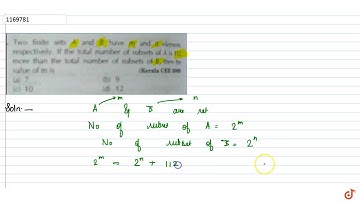 1169781
Two finite sets A and B have m and n elements
respectively. If the total number of subsets of A is 112
more than the total number of subsets of B, then the
value of m is (Kerala CEE
(a) 7 (b) 9
(c) 10 (d) 12
Soln:—
A^m & B^n are set
No of subset of A = 2^m
No of subset of B = 2^n
2^m = 2^n + 112